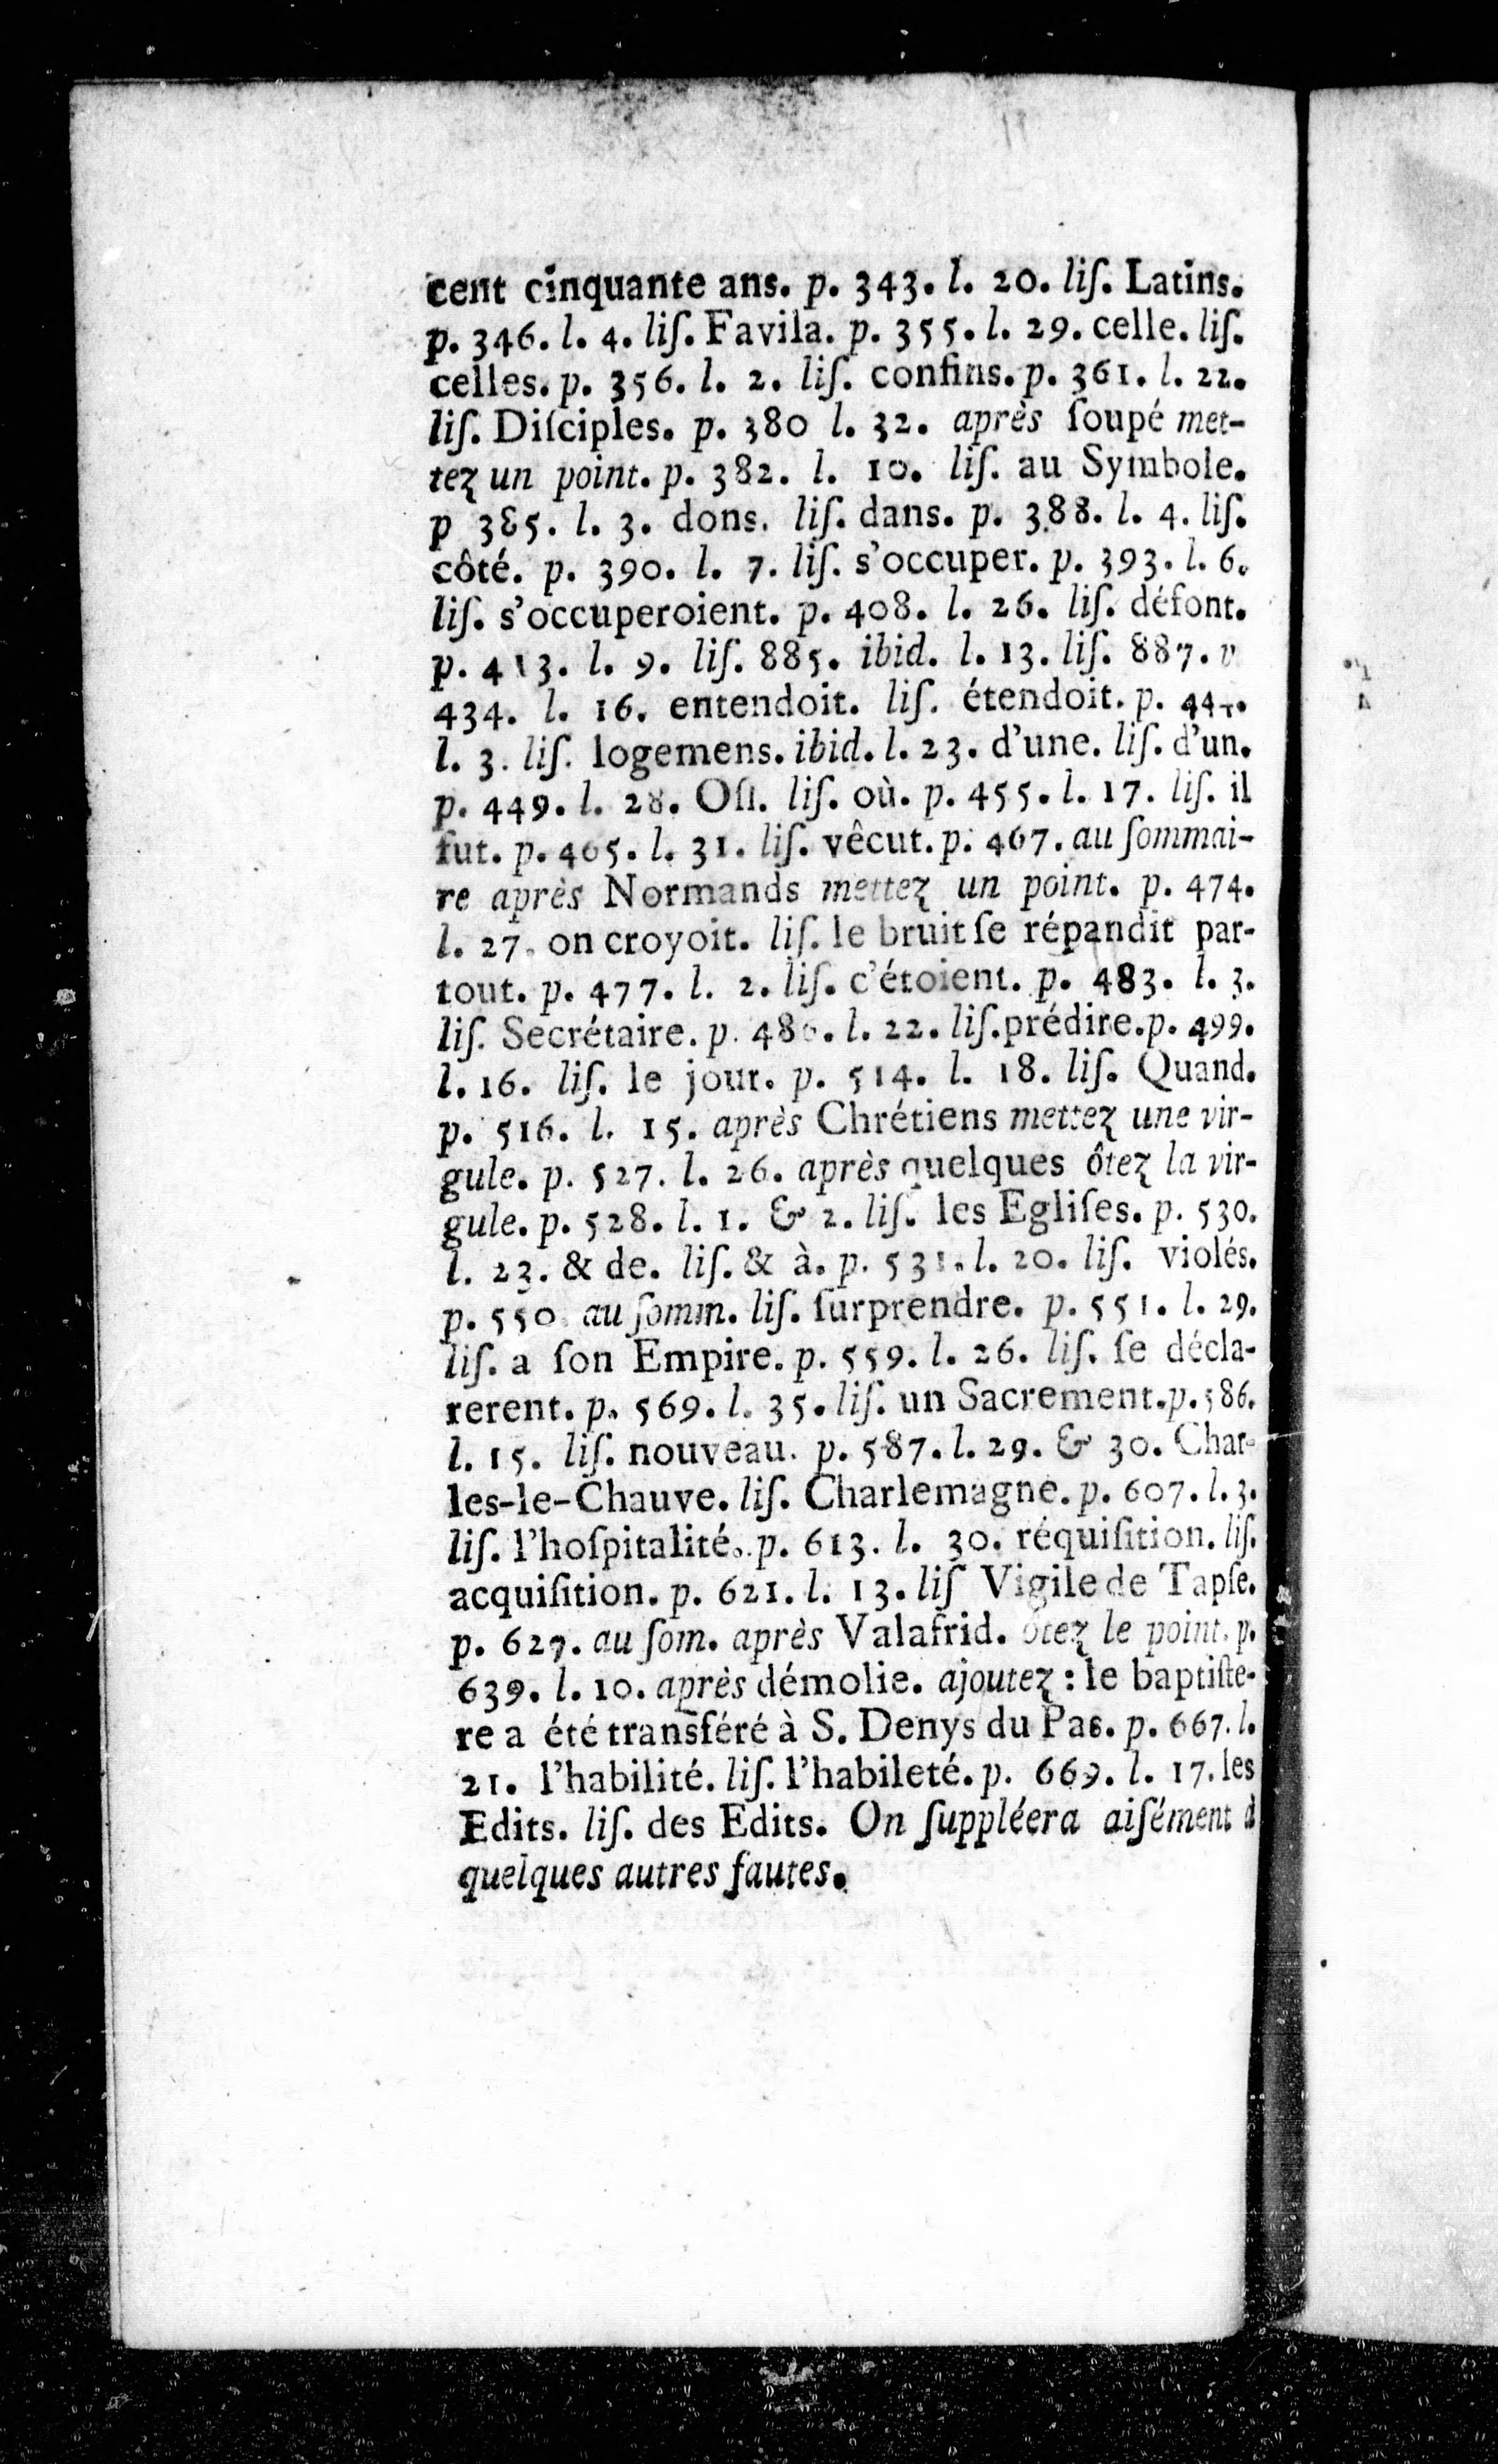 cent cinquante ans. p. 343. l. 20. liſ. Latins.
p. 346. l. 4. liſ. Favila. p. 355. l. 29. celle. liſ.
celles. p. 356. l. 2. liſ. confins. p. 361. l. 22.
liſ. Diſciples. p. 380 l. 32. après ſoupé met-
tez un point. p. 382. l. 10. liſ. au Symbole.
p 385. l. 3. dons. liſ. dans. p. 388. l. 4. liſ.
côté. p. 390. l. 7. liſ. s'occuper. p. 393. l. 6.
liſ. s'occuperoient. p. 408. l. 26. liſ. défont.
p. 413. l. 9. liſ. 885. ibid. l. 13. liſ. 887. p
434. l. 16. entendoit. liſ. étendoit. p.
l. 3. liſ. logemens. ibid. l. 23. d'une. liſ. d'un.
p. 449. l. 28. liſ. où. p. 455. l. 17. liſ. il
fut. p. 465. l. 31. liſ. vêcut. p. 467. au ſommai-
re après Normands mettez un point. p. 474.
l. 27. on croyoit. liſ. le bruit ſe répandit par-
tout. p. 477. l. 2. liſ. c'étoient. p. 483. l. 3.
liſ. Secrétaire. p. l. 22. liſ. prédire. p. 499.
l. 16. liſ. le jour. p. 514. l. 18. liſ. Quand.
p. 516. l. 15. après Chrétiens mettez une vir-
gule. p. 527. l. 26. après quelques ôtez la vir-
gule. p. 528. l. 1. & 2. liſ. les Egliſes. p. 530.
l. 23. & de. liſ. & à. p. 531. l. 20. liſ. violés.
p. 550. au ſomm. liſ. ſurprendre. p. 551. l. 29.
liſ. a ſon Empire. p. 559. l. 26. liſ. ſe décla-
rerent. p. 569. l. 35. liſ. un Sacrement. p. 586.
l. 15. liſ. nouveau. p. 587. l. 29. & 30. Char-
les-le-Chauve. liſ. Charlemagne. p. 607. l. 3.
liſ. l'hoſpitalité. p. 613. l. 30. réquiſition. liſ.
acquiſition. p. 621. l. 13. liſ Vigile de Tapſe.
p. 627. au ſom. après Valafrid. ôtez le point. p.
639. l. 10. après démolie. ajoutez : le baptiſte-
re a été transféré à S. Denys du Pas. p. 667. l.
21. l'habilité. liſ. l'habileté. p. 669. l. 17. les
Edits. liſ. des Edits. On ſuppléera aiſément à
quelques autres fautes.